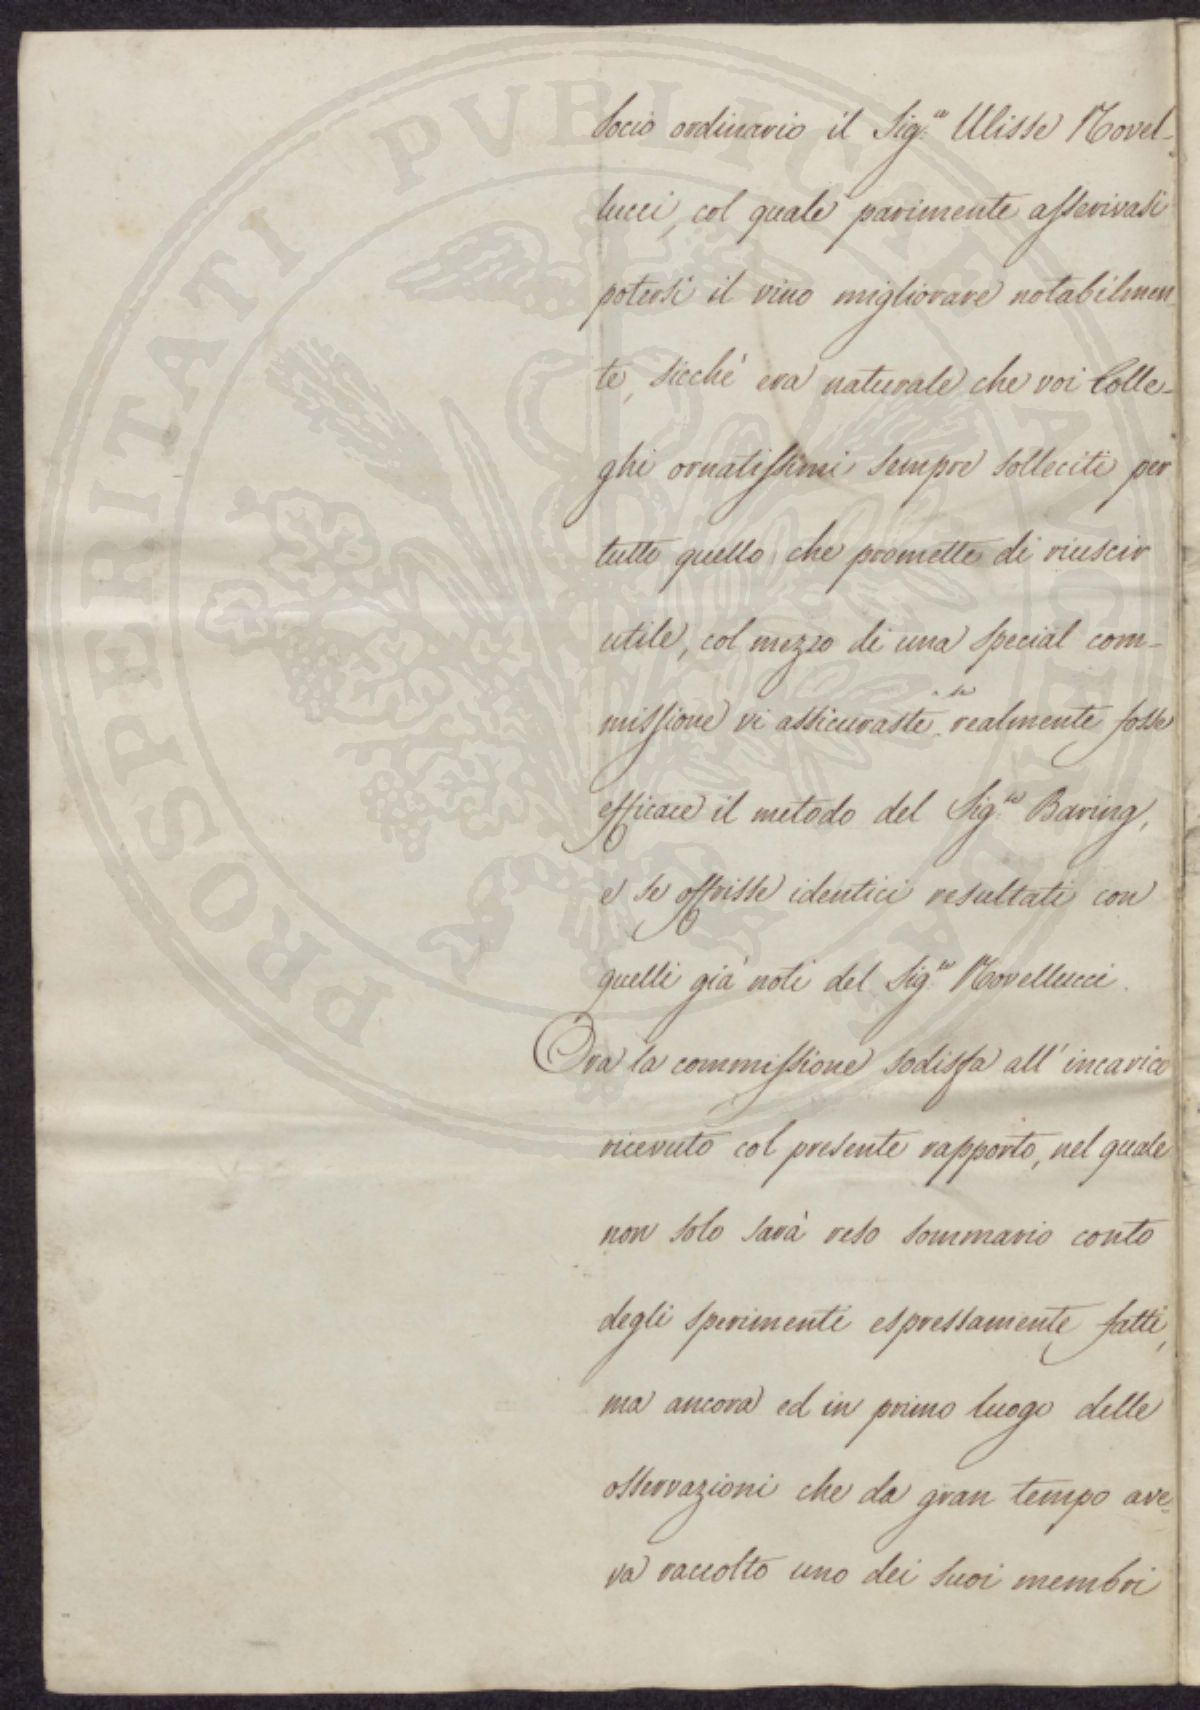 Socio ordinario il Sig.re Ulisse Novel-
lucci, col quale parimente asserivasi
potersi il vino migliorare notabilmen-
te, sicchè era naturale che voi Colle-
ghi ornatissimi sempre solleciti per
tutto quello che promette di riuscir
utile, col mezzo di una special com-
missione vi assicuraste se realmente fosse
efficace il metodo del Sig.re Baring,
e se offrisse identici resultati con
quelli già noti del Sig.re Novellucci.
Ora la commissione sodisfa all'incarico
ricevuto col presente rapporto, nel quale
non solo sarà reso sommario conto
degli sperimenti espressamente fatti,
ma ancora ed in primo luogo delle
osservazioni che da gran tempo ave-
va raccolto uno dei suoi membri
PROSPERITATI PVBLICAE AVGENDAE